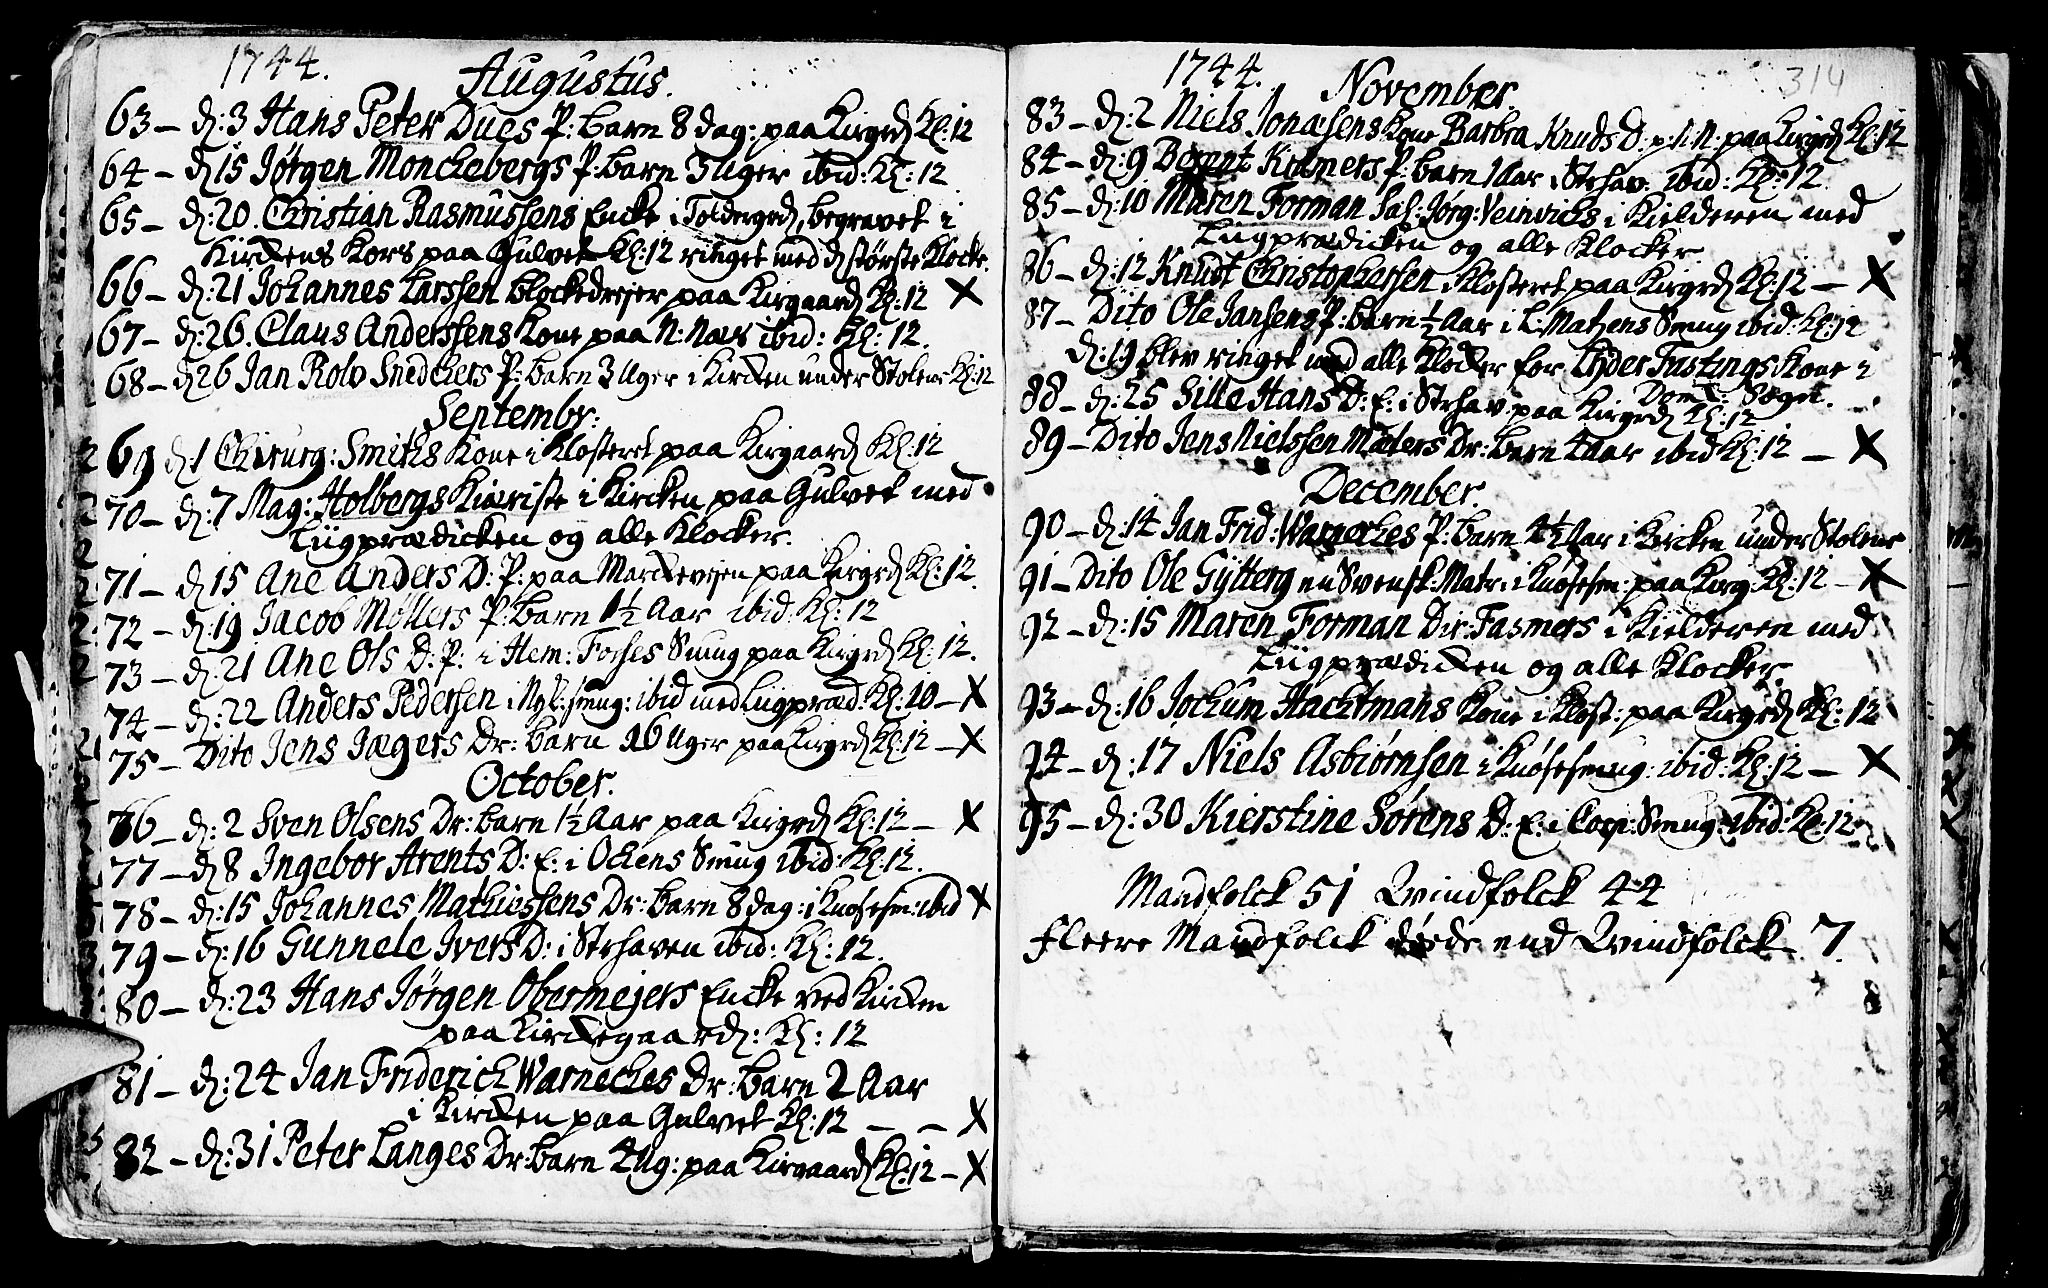 1744.
Augustus.
63 – d: 3 Hans Peter Dues P: barn 8 dag: paa Kirgrd Kl: 12
64 – d 15 Jørgen Monckebergs P: barn 3 Uger ibid: Kl: 12
65 – d: 20. Christian Rasmussens Encke i Toldengrd, begravet i
Kirckens Kors paa Gulvet Kl: 12 ringet med d største Klocke.
66 – d: 21 Johannes Larssen Blockedreyer paa Kirgaard Kl: 12 X
67 – d: 26. Claus Anderssens Kone paa N: Næs ibid: Kl: 12.
68 – d 26 Jan Rolv Snedckers P: barn 3 Uger i Kircken under Stolene Kl: 12
Septembr:
69 d: 1 Chirurg: Smiths Kone i Klosteret paa Kirgaard Kl: 12
70 – d: 7 Mag: Holbergs Kiæriste i Kircken paa Gulvet med
Liigprædicken og alle Klocker.
71 – d 15 Ane Anders D: P: paa Marckeveyen paa Kirgrd Kl: 12.
72 – d: 19 Jacob Møllers P: barn 1½ Aar ibid: Kl: 12
73 – d: 21 Ane Ols D: P: i Hem: Foshes Smug paa Kirgrd Kl: 12.
74 – d: 22 Anders Pedersen i Nyk: smug: ibid med Liigpræd: Kl: 10 – X
75 – Dito Jens Jægers Dr: barn 16 Uger paa Kirgrd Kl: 12 – X
October.
76 – d: 2 Sven Olsens Dr: barn 1½ Aar paa Kirgrd Kl: 12 – X
77 – d 8 Ingebor Arents D: E: i Ockens Smug ibid: Kl: 12.
78 – d: 15 Johannes Mathiessens Dr: barn 8 dag: i Knøsesm: ibid X
79 – d: 16 Gunnele Ivers D: i Strhaven ibid: Kl: 12.
80 – d: 23 Hans Jørgen Obermejers Encke ved Kircken
paa Kirckegaard: Kl: 12
81 – d: 24 Jan Friderich Warneckes Dr: barn 2 Aar
i Kircken paa Gulvet Kl: 12 – – X
82 – d: 31 Peter Langes Dr: barn 4 Ug: paa Kirgaard Kl: 12 – X
1744.
314
November.
83 – d: 2 Niels Jonæsens Kone Barbra Knuds D: p: N: paa Kirgrd Kl: 12
84 – d: 9 Berent Kramers P: barn 1 Aar i Strhav: ibid: Kl: 12.
85 – d: 10 Maren Forman Sal: Jørg: Veinvichs i Kielderen med
Liigprædicken og alle Klocker.
86 – d: 12 Knudt Christophersen Klosteret paa Kirgrd Kl: 12 – X
87 – Dito Ole Jansens P: barn ½ Aar i C: Matzens Smug ibid: Kl: 12
d: 19 blev ringet med alle Klocker for Lyder Fustings Kone i
Domk: Soget.
88 – d: 25 Sille Hans D: E: i Strhav: paa Kirgrd Kl: 12
89 – Dito Jens Nielssen Mælers Dr: barn 4 Aar ibid Kl: 12 – X
December.
90 – d: 14 Jan Frid: Warneckes P: barn 4½ Aar i Kircken under Stolene
91 – Dito Ole Gytterg en Svensk: Matr: i Knøsesm: paa Kirg Kl: 12 – X
92 – d: 15 Maren Forman Dir: Fasmers i Kielderen med
Liigprædicken og alle Klocker.
93 – d: 16 Jochum Hachtmans Kone i Klost: paa Kirgrd Kl: 12
94 – d: 17 Niels Asbiørnsen i Knøsesmug: ibid: Kl: 12 – X
95 – d: 30 Kierstine Sørens D: E: i Smug: ibid: Kl: 12
Mandfolck 51 Qvindfolck 44
Fleere Mandfolck døde end Qvindfolck 7.